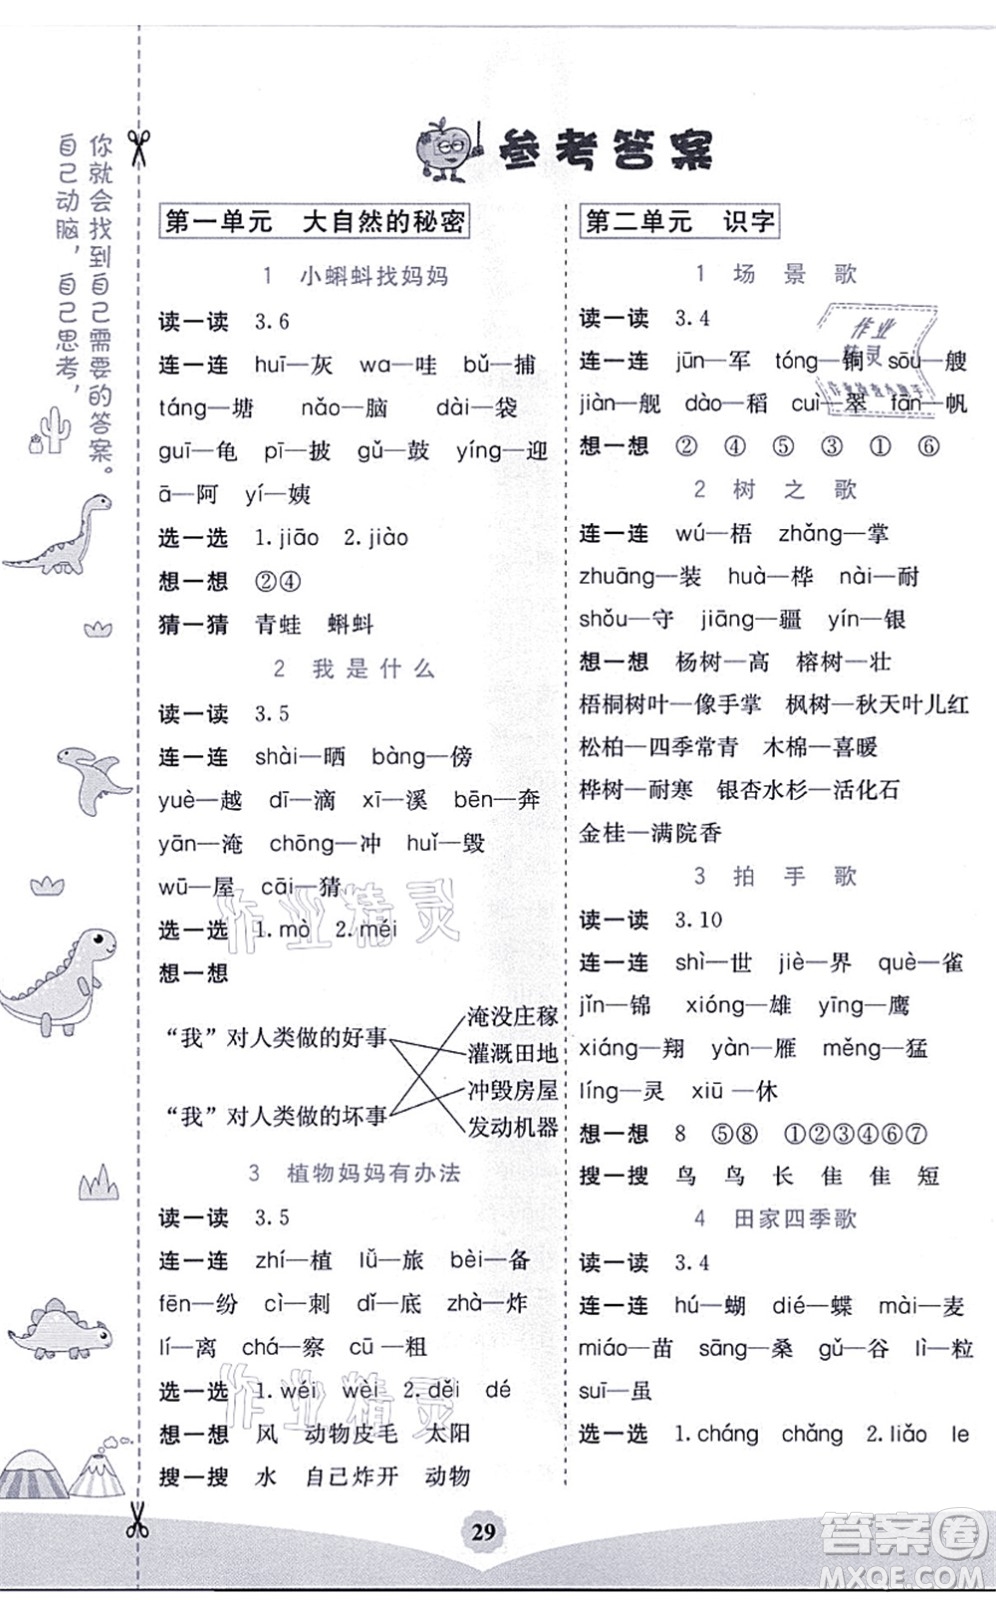 你就会找到自己需要的答案。
自己动脑，自己思考，
参考答案
第一单元 大自然的秘密
1 小蝌蚪找妈妈
读一读 3.6
连一连 huī—灰 wa—哇 bǔ—捕
táng—塘 nǎo—脑 dài—袋
guī—龟 pī—披 gǔ—鼓 yíng—迎
ā—阿 yí—姨
选一选 1.jiāo 2.jiào
想一想 ②④
猜一猜 青蛙 蝌蚪
2 我是什么
读一读 3.5
连一连 shài—晒 bàng—傍
yuè—越 dī—滴 xī—溪 bēn—奔
yān—淹 chōng—冲 huǐ—毁
wū—屋 cāi—猜
选一选 1.mò 2.méi
想一想
“我”对人类做的好事
“我”对人类做的坏事
淹没庄稼
灌溉田地
冲毁房屋
发动机器
3 植物妈妈有办法
读一读 3.5
连一连 zhí—植 lǚ—旅 bèi—备
fēn—纷 cì—刺 dǐ—底 zhà—炸
lí—离 chá—察 cū—粗
选一选 1.wéi wèi 2.děi dé
想一想 风 动物皮毛 太阳
搜一搜 水 自己炸开 动物
第二单元 识字
1 场景歌
读一读 3.4
连一连 jūn—军 tóng—铜 sōu—艘
jiàn—舰 dào—稻 cuì—翠 fān—帆
想一想 ② ④ ⑤ ③ ① ⑥
2 树之歌
连一连 wú—梧 zhǎng—掌
zhuāng—装 huà—桦 nài—耐
shǒu—守 jiāng—疆 yín—银
想一想 杨树—高 榕树—壮
梧桐树叶—像手掌 枫树—秋天叶儿红
松柏—四季常青 木棉—喜暖
桦树—耐寒 银杏水杉—活化石
金桂—满院香
3 拍手歌
读一读 3.10
连一连 shì—世 jiè—界 què—雀
jǐn—锦 xióng—雄 yīng—鹰
xiáng—翔 yàn—雁 měng—猛
líng—灵 xiū—休
想一想 8 ⑤⑧ ①②③④⑥⑦
搜一搜 鸟 鸟 长 隹 隹 短
4 田家四季歌
读一读 3.4
连一连 hú—蝴 dié—蝶 mài—麦
miáo—苗 sāng—桑 gǔ—谷 lì—粒
suī—虽
选一选 1.cháng chǎng 2.liǎo le
29
作业精灵
作业精灵
作业精灵
答案圈
MXQE.COM